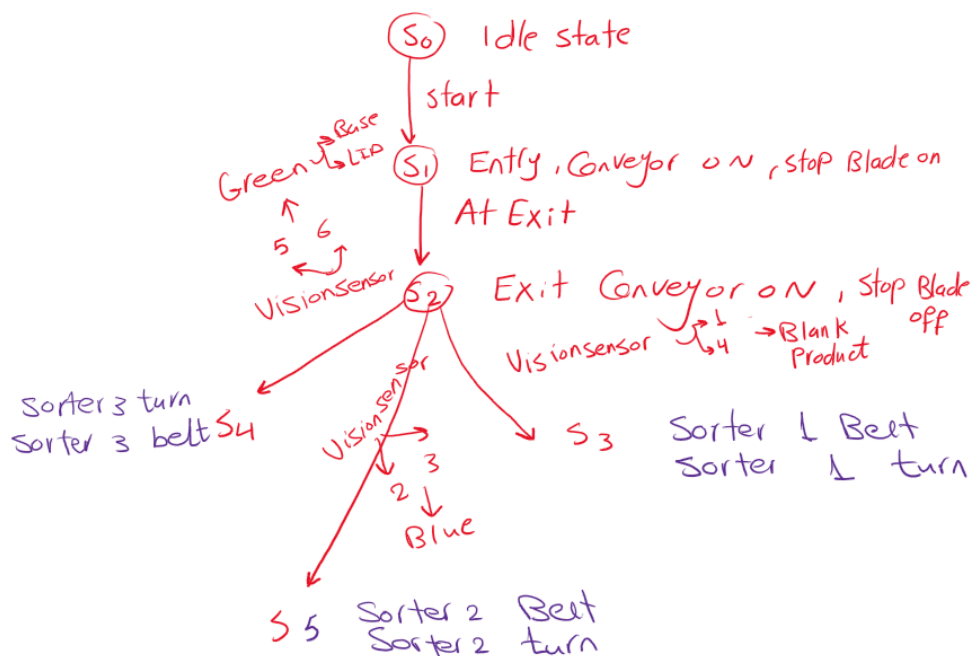 S0 Idle state
start
Base
Green LID
S1 Entry, Conveyor ON, stop Blade on
At Exit
5 6
Visionsensor
S2 Exit Conveyor ON, stop Blade off
Visionsensor 1 4 Blank Product
Sorter 3 turn
Sorter 3 belt S4
Visionsensor
3
2
Blue
S3 Sorter 1 Belt
Sorter 1 turn
S5 Sorter 2 Belt
Sorter 2 turn